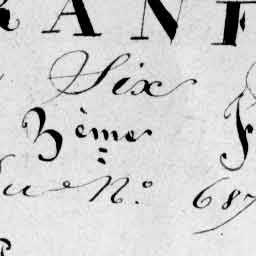 RANF
Six
3ème F
ue No. 687